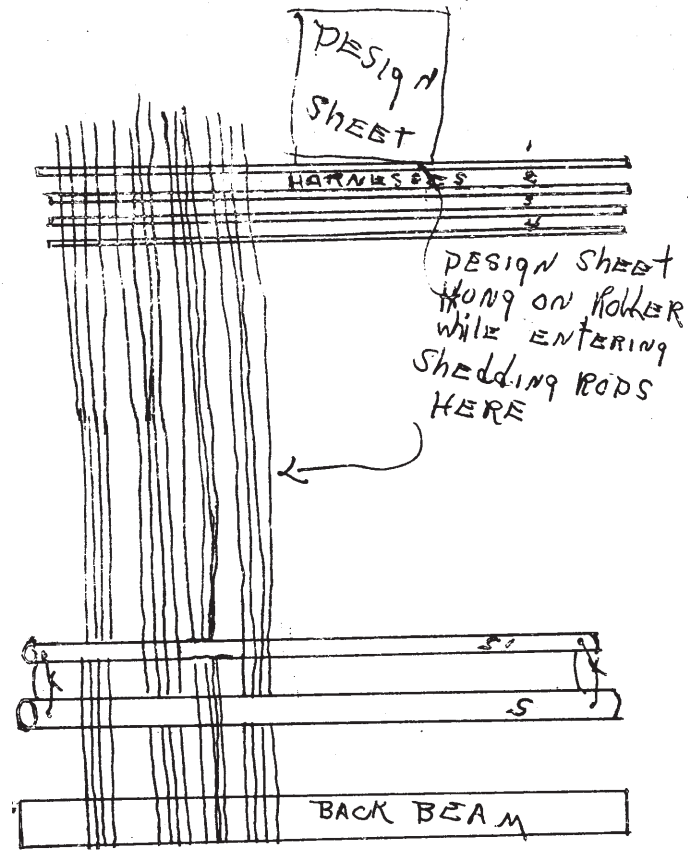 DESIGN
SHEET
1
HARNESSES 2
3
4
DESIGN SHEET
HUNG ON ROLLER
WHILE ENTERING
SHEDDING RODS
HERE
S1
S
BACK BEAM